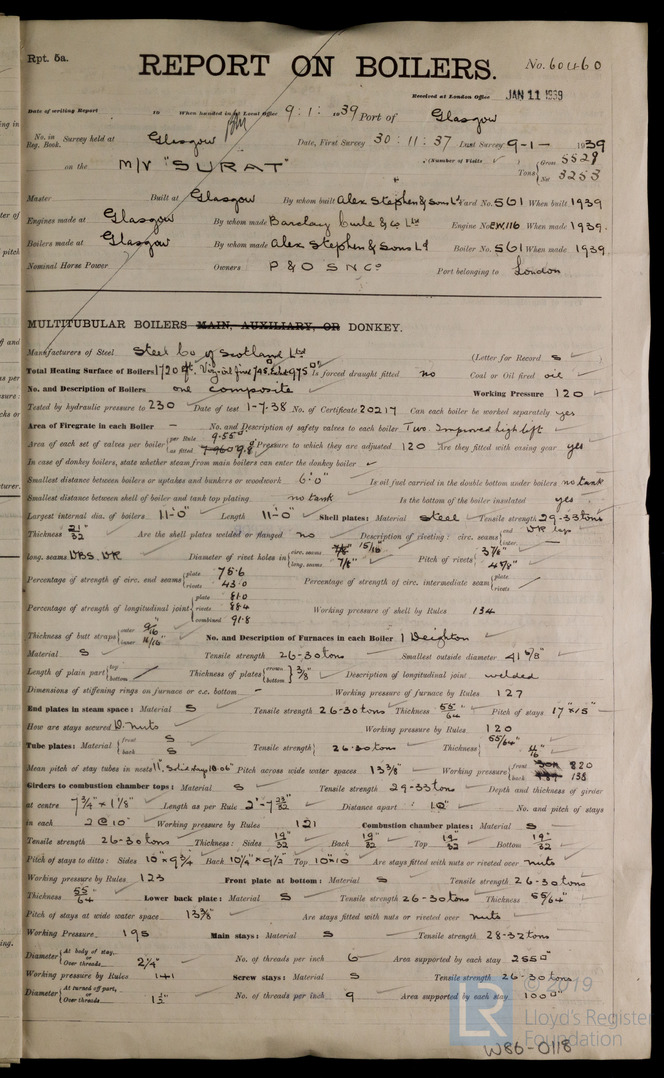 Rpt. 5a.
REPORT ON BOILERS.
No. 60460
Received at London Office JAN 11 1939
Date of writing Report 19 When handed in at Local Office 9 : 1 : 1939 Port of Glasgow
No. in Reg. Book. Survey held at Glasgow Date, First Survey 30 : 11 : 37 Last Survey 9-1- 1939
on the M/V "SURAT" (Number of Visits ) Tons { Gross 5529 Net 3253
Master Built at Glasgow By whom built Alex Stephen & Sons Ld Yard No. 561 When built 1939
Engines made at Glasgow By whom made Barclay Curle & Co Ltd Engine No. EW.116 When made 1939.
Boilers made at Glasgow By whom made Alex Stephen & Sons Ld Boiler No. 561 When made 1939
Nominal Horse Power Owners P & O S N Co Port belonging to London
MULTITUBULAR BOILERS MAIN, AUXILIARY, OR DONKEY.
Manufacturers of Steel Steel Co of Scotland Ltd (Letter for Record S )
Total Heating Surface of Boilers 1720 Is forced draught fitted no Coal or Oil fired oil
No. and Description of Boilers one composite Working Pressure 120
Tested by hydraulic pressure to 230 Date of test 1-7-38 No. of Certificate 20217 Can each boiler be worked separately yes
Area of Firegrate in each Boiler – No. and Description of safety valves to each boiler Two. Improved high lift
Area of each set of valves per boiler { per Rule 9.55 as fitted 9.8 Pressure to which they are adjusted 120 Are they fitted with easing gear yes
In case of donkey boilers, state whether steam from main boilers can enter the donkey boiler
Smallest distance between boilers or uptakes and bunkers or woodwork 6'-0" Is oil fuel carried in the double bottom under boilers no tank
Smallest distance between shell of boiler and tank top plating no tank Is the bottom of the boiler insulated yes
Largest internal dia. of boilers 11'-0" Length 11'-0" Shell plates: Material Steel Tensile strength 29-33 tons
Thickness 21/32" Are the shell plates welded or flanged no Description of riveting: circ. seams { end DR lap inter. –
long. seams DBS. DR Diameter of rivet holes in { circ. seams 15/16 long. seams 7/8" Pitch of rivets { 3 7/8" 4 5/8"
Percentage of strength of circ. end seams { plate 75.6 rivets 43.0 Percentage of strength of circ. intermediate seam { plate rivets
Percentage of strength of longitudinal joint { plate 81.0 rivets 88.4 combined 91.8 Working pressure of shell by Rules 134
Thickness of butt straps { outer 9/16" inner 11/16" No. and Description of Furnaces in each Boiler 1 Deighton
Material S Tensile strength 26-30 tons Smallest outside diameter 41 5/8"
Length of plain part { top bottom Thickness of plates { crown bottom } 3/8" Description of longitudinal joint welded
Dimensions of stiffening rings on furnace or c.c. bottom – Working pressure of furnace by Rules 127
End plates in steam space: Material S Tensile strength 26-30 tons Thickness 55/64" Pitch of stays 17" x 15"
How are stays secured D. nuts Working pressure by Rules 120
Tube plates: Material { front S back S Tensile strength { 26-30 tons Thickness { 55/64" 11/16"
Mean pitch of stay tubes in nests Pitch across wide water spaces 13 3/8" Working pressure { front 820 back 138
Girders to combustion chamber tops: Material S Tensile strength 29-33 tons Depth and thickness of girder
at centre 7 3/4" x 1 1/8" Length as per Rule 2'-7 23/32" Distance apart 10" No. and pitch of stays
in each 2 @ 10" Working pressure by Rules 121 Combustion chamber plates: Material S
Tensile strength 26-30 tons Thickness: Sides 19/32" Back 19/32" Top 19/32" Bottom 19/32"
Pitch of stays to ditto: Sides 10" x 9 3/4 Back 10 1/4" x 9 1/2 Top 10" x 10 Are stays fitted with nuts or riveted over nuts
Working pressure by Rules 123 Front plate at bottom: Material S Tensile strength 26-30 tons
Thickness 55/64" Lower back plate: Material S Tensile strength 26-30 tons Thickness 55/64"
Pitch of stays at wide water space 13 3/8" Are stays fitted with nuts or riveted over nuts
Working Pressure 195 Main stays: Material S Tensile strength 28-32 tons
Diameter { At body of stay, or Over threads 2 1/4" No. of threads per inch 6 Area supported by each stay 255"
Working pressure by Rules 141 Screw stays: Material S Tensile strength 26-30 tons
Diameter { At turned off part, or Over threads 1 1/2" No. of threads per inch 9 Area supported by each stay 100"
© 2019
LR Lloyd's Register Foundation
W86-0118